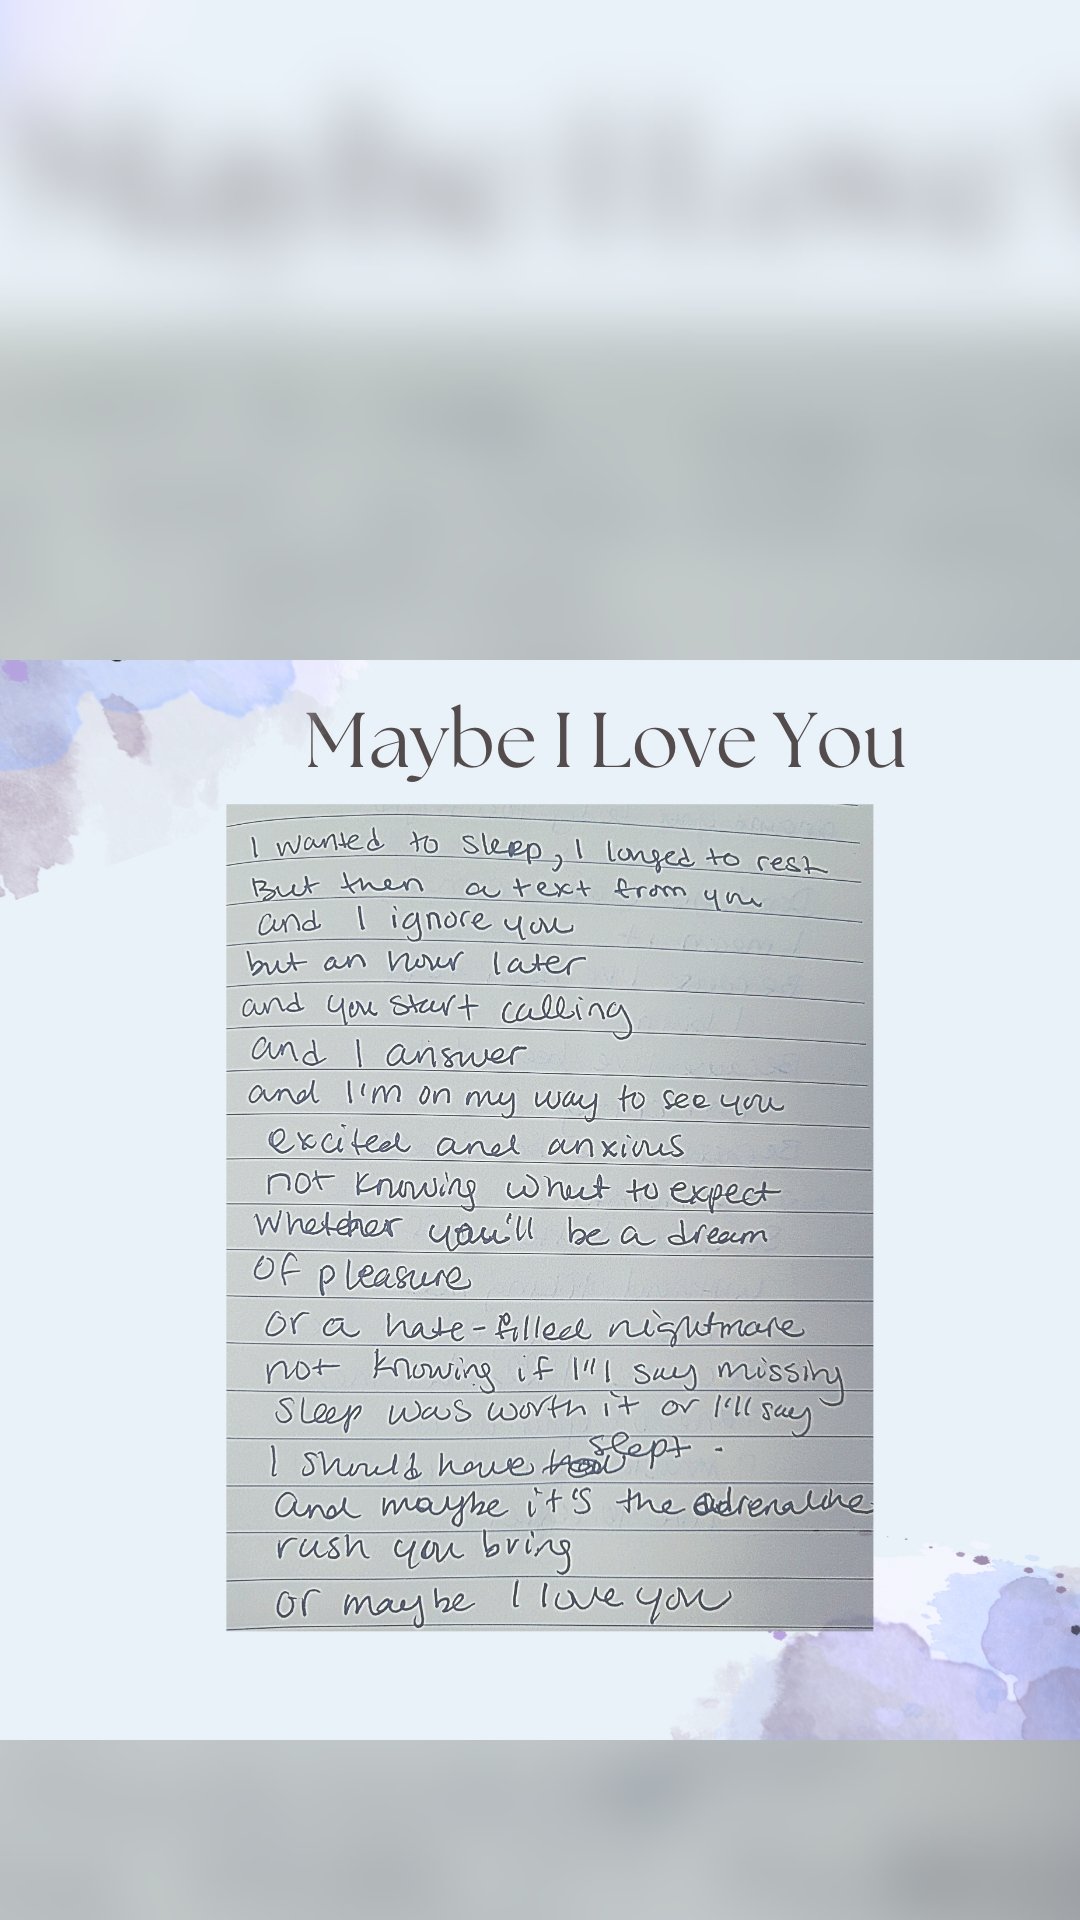 Maybe I Love You
I wanted to sleep, I longed to rest
But then a text from you
and I ignore you
but an hour later
and you start calling
and I answer
and I'm on my way to see you
excited and anxious
not knowing what to expect
Whether you'll be a dream
of pleasure
or a hate-filled nightmare
not knowing if I'll say missing
sleep was worth it or I'll say
I should have slept.
And maybe it's the adrenaline
rush you bring
or maybe I love you